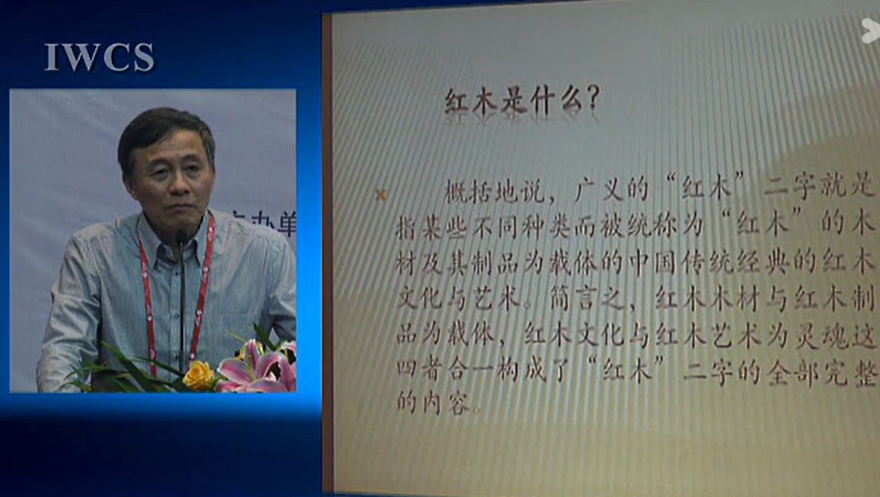 IWCS
办单
红木是什么?
概括地说，广义的“红木”二字就是
指某些不同种类而被统称为“红木”的木
材及其制品为载体的中国传统经典的红木
文化与艺术。简言之，红木木材与红木制
品为载体，红木文化与红木艺术为灵魂这
四者合一构成了“红木”二字的全部完整
的内容。